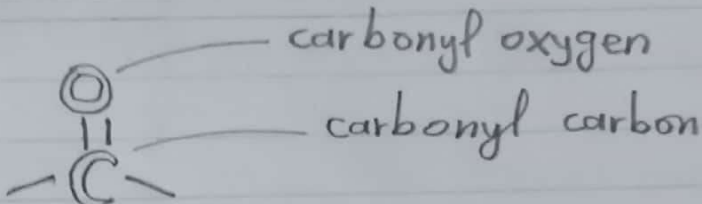 carbonyl oxygen
O
C
carbonyl carbon